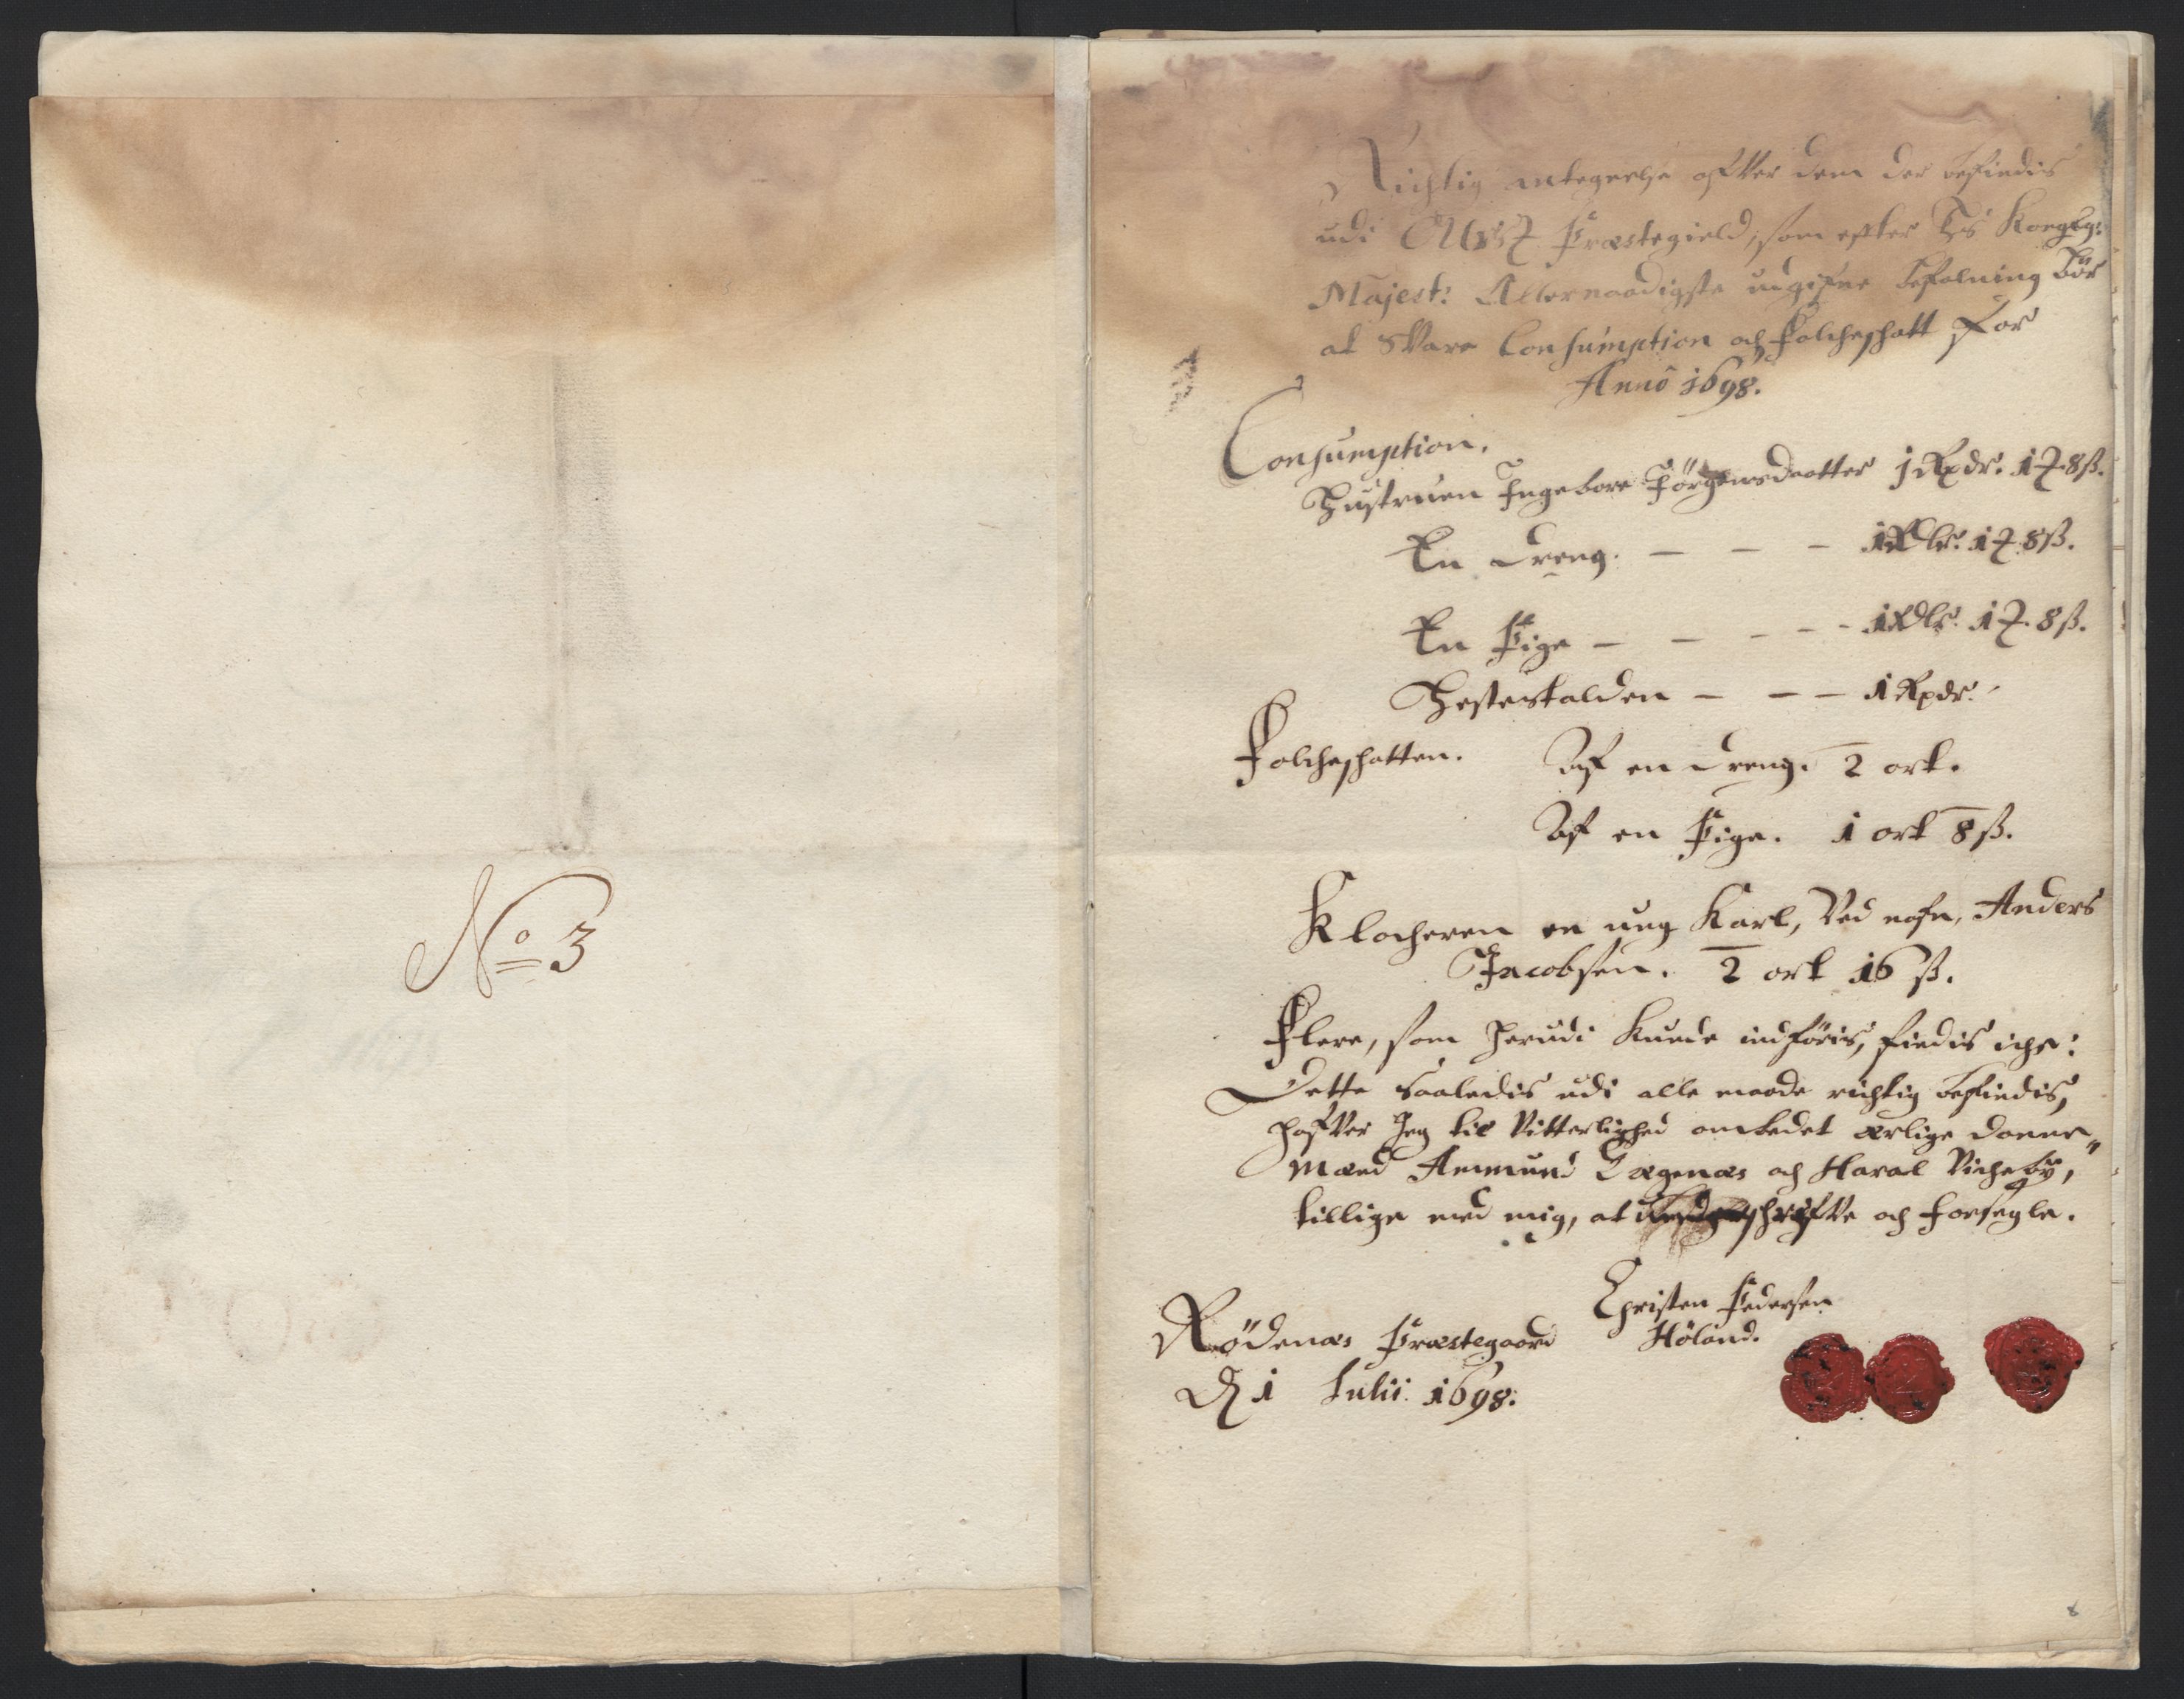 No 3
Richtig antegnelse ofver dem der befindis
udi Præstegield, som efter Hs Konglg:
Majest: Allernaadigste udgifne befalning bör
at Svare Consumption och Folcheschatt for
Anno 1698.
Consumption.
Hustruen Ingebore Jörgensdaatter 1 Rxdr. 1 8 ß.
En dreng. — — — 1 Rdlr. 1 8 ß.
En Pige — — — — — 1 Rdlr. 1 8 ß.
Hestestalden — — — 1 Rxdr.
Folcheschatten. Af en dreng. 2 ort.
Af en Pige. 1 ort 8 ß.
Klocheren en ung Karl, Ved nafn, Anders
Jacobsen. 2 ort 16 ß.
Flere, som herudi kunde indföris, findis iche:
Dette saaledis udi alle maade richtig befindis,
hafver Jeg til Vitterlighed ombedet ærlige danne
Mænd Ammund og Haral Vicheby,
tillige med mig, at underschrifve och forsegle.
Christen Pedersen
Höland.
Rödenæs Præstegaard
D 1 Julii 1698.